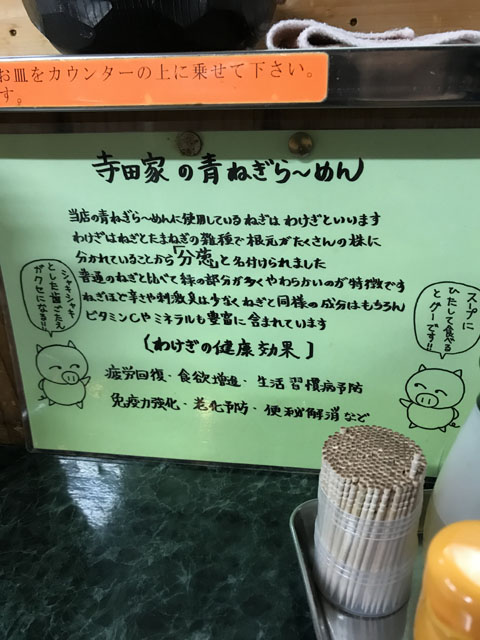 お皿をカウンターの上に乗せて下さい。
す。
寺田家の青ねぎら〜めん
当店の青ねぎら〜めんに使用しているねぎは わけぎといいます
わけぎはねぎとたまねぎの雑種で根元がたくさんの株に
分かれていることから「分葱」と名付けられました
普通のねぎと比べて緑の部分が多くやわらかいのが特徴です
ねぎほど辛さや刺激臭は少なくねぎと同様の成分はもちろん
ビタミンCやミネラルも豊富に含まれています
(わけぎの健康効果)
疲労回復・食欲増進・生活習慣病予防
免疫力強化・老化予防・便秘解消など
シャキシャキ
とした歯ごたえ
がクセになる!!
スープに
ひたして食べる
とグーです!!